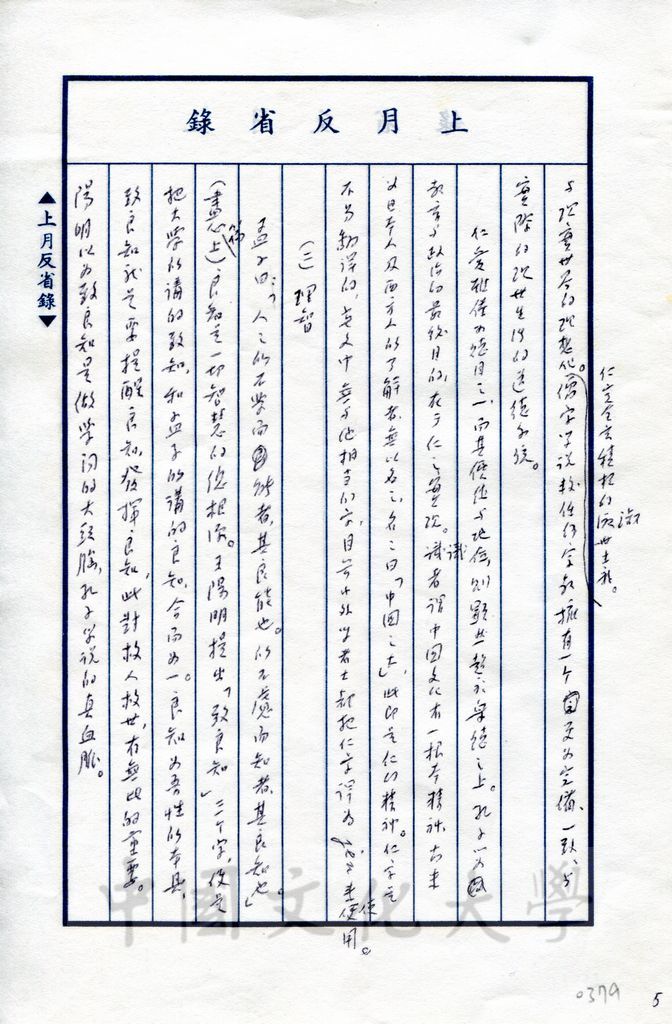 上月反省錄
仁實含有積極的淑世主義。
與現實世界的理想化。儒家學說較任何宗教擁有一個更為完備、一致、與
實際的現世生活的道德系統。
仁愛雖僅為德目之一，而其價值與地位，則顯然超於眾德之上。孔子以為
教育與政治的最終目的，在于仁之實現。識者謂中國文化有一根本精神，古來
為日本人及西方人所了解者，無以名之，名之曰「中國之夫」，此即是仁的精神。仁字是
不易翻譯的，英文中無與他相當的字，目前中外學者士都把仁字譯為 來使用。
（二）理智
孟子曰：「人之所不學而能者，其良能也。所不慮而知者，其良知也」。
（盡心篇上）良知是一切智慧的總根源。王陽明提出「致良知」三個字，便是
把大學所講的致知，和孟子所講的良知，合而為一。良知為吾性所本具，
致良知就是要提醒良知，發揮良知，此對救人救世，有無比的重要。
陽明以為致良知是做學問的大頭腦，孔子學說的真血脈。
▲上月反省錄▼
中國文化大學
0379
5